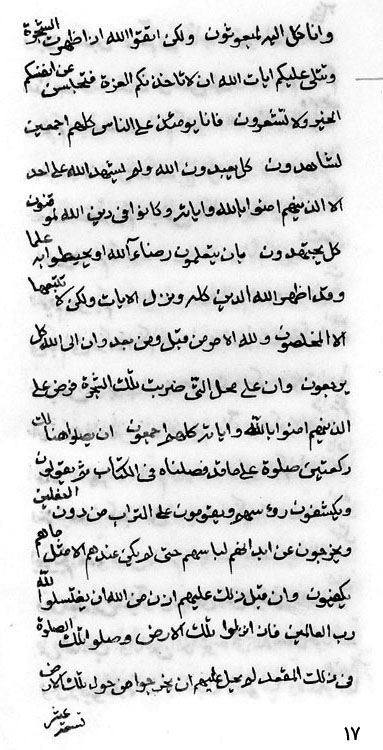 وانا كل اليه لمبعوثون ولكن اتقوا الله ان اظهرت الشجرة
وتتلى عليكم ايات الله ان لا تاخذنكم العزة عن انفسكم
الخير ولا تشعرون فانا يومئذ على الناس كلهم اجمعين
لشاهدون كل يعبدون الله ولم يشهد الله على احد
الا الذينهم امنوا بالله واياته وكانوا في دين الله لموقنون
كل يجتهدون بان يتعلمون رضاء الله او يحيطوا به علما
وقل اظهر الله الدين كله ونزل الايات ولكن لا تتبعها
الا المخلصون ولله الامر من قبل ومن بعد وان الى الله كل
يرجعون وان على محل التي ضربت تلك الشجرة فرض على
الذينهم امنوا بالله واياته كلهم اجمعون ان يصلوا هنالك
ركعتين صلوة على ما قد فصلناه في الكتاب ثم يقولون
ويكشفون رؤسهم ويقومون على التراب من دون النعلين
ويخرجون عن ابدانهم لباسهم حتى لم يكن عندهم الا مثل ما هم
يكفنون وان قبل ذلك عليهم اذن من الله ان يغتسلوا لله
رب العالمين فان انزلوا تلك الارض وصلوا تلك الصلوة
في ذلك المقعد لم يحل عليهم ان يخرجوا من حول تلك الارض
تسعة عشر
١٧